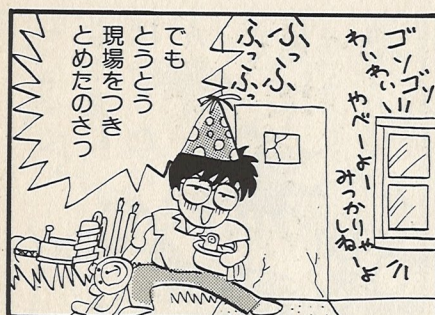 ゴソゴソ
わいわい
やべーよー
みつかりゃ
しねーよ
ふっふ
ふっふっ
でも
とうとう
現場をつき
とめたのさっ